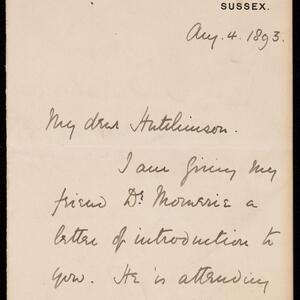 SUSSEX.
Aug. 4. 1893.
My dear Hutchinson.
I am giving my
friend Dr Momerie a
letter of introduction to
you. He is attending